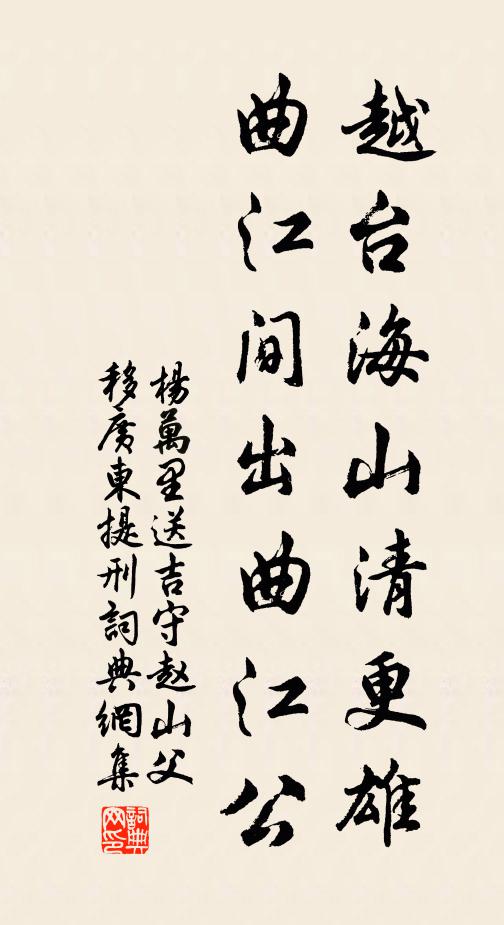 越台海山清更雄
曲江间出曲江公
楊萬里送吉守赵山父
移廣東提刑詞典網集
詞典
网印